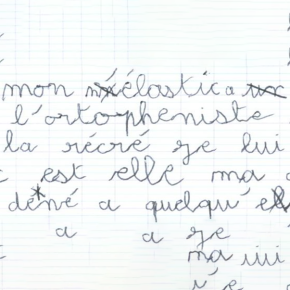 mon élastic a
l'ortopheniste
la récré ge lui
est elle ma
déné a quelqu'
a a ge
ma